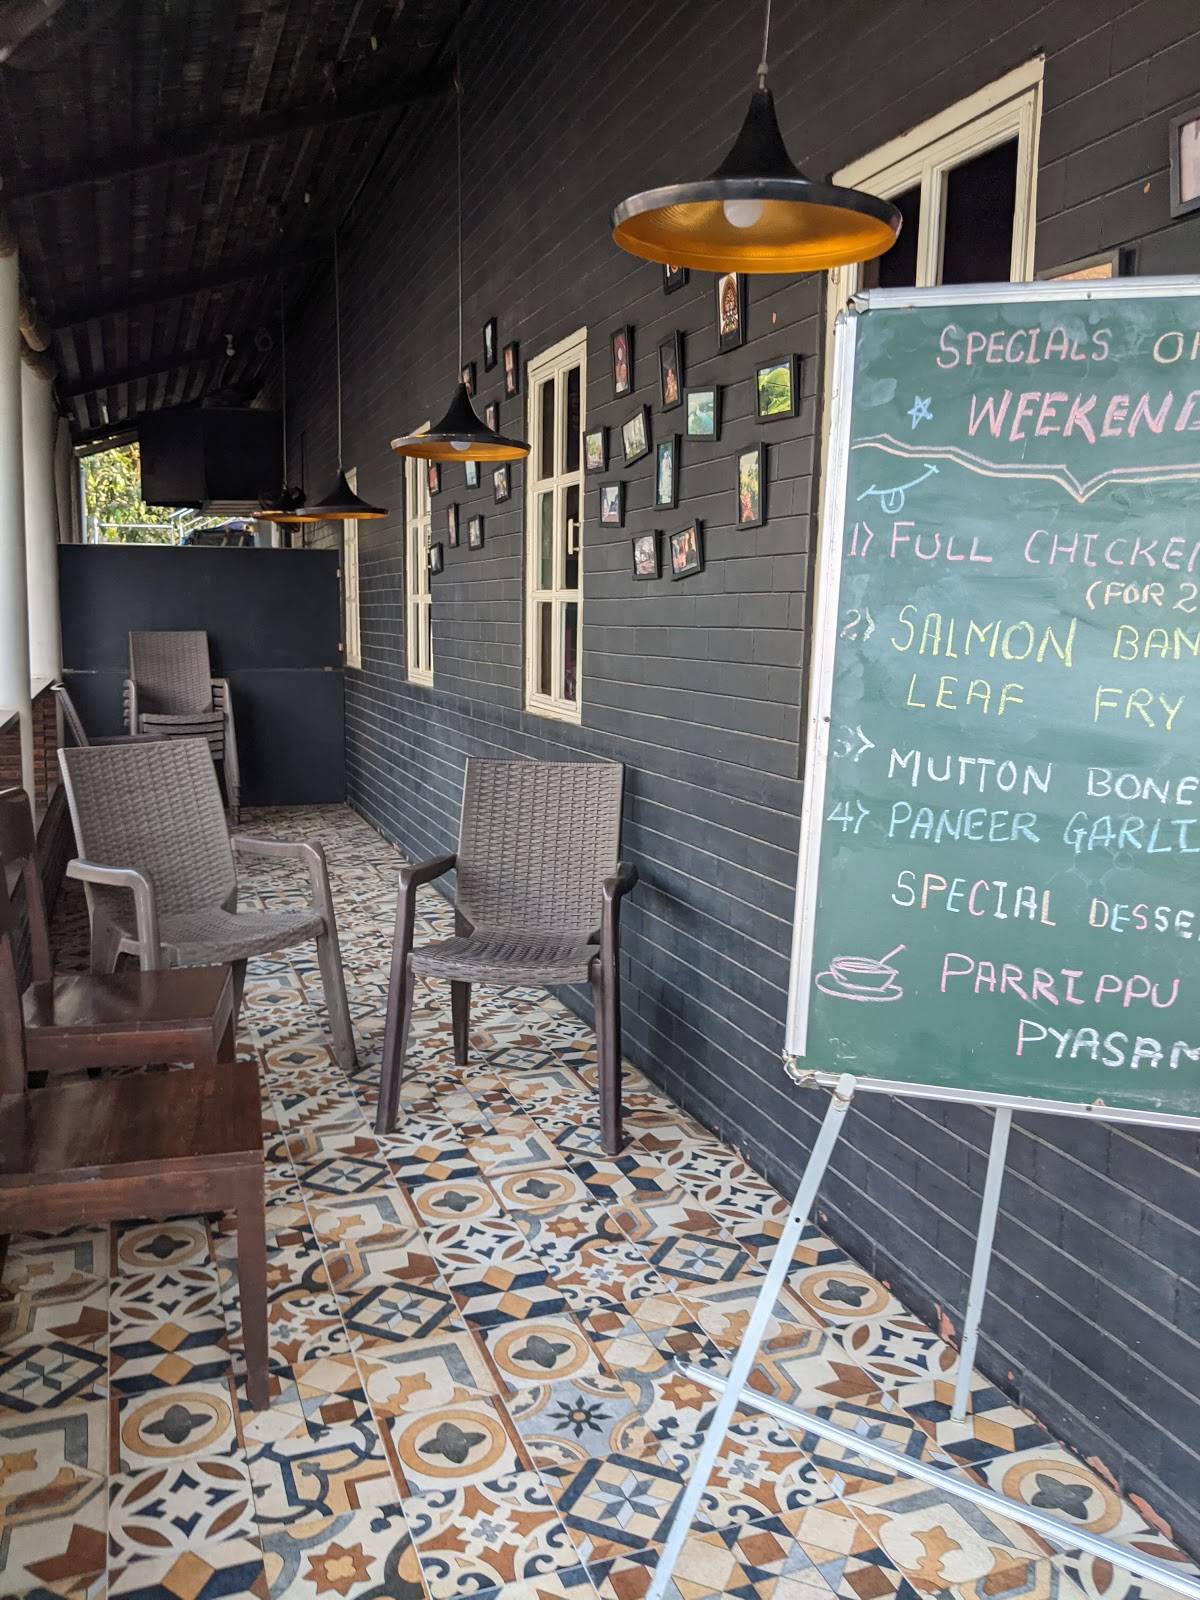 SPECIALS OF
WEEKEND
1) FULL CHICKEN
(FOR 2
2) SALMON BAN
LEAF FRY
3) MUTTON BONE
4) PANEER GARLI
SPECIAL DESSE
PARRIPPU
PYASAM